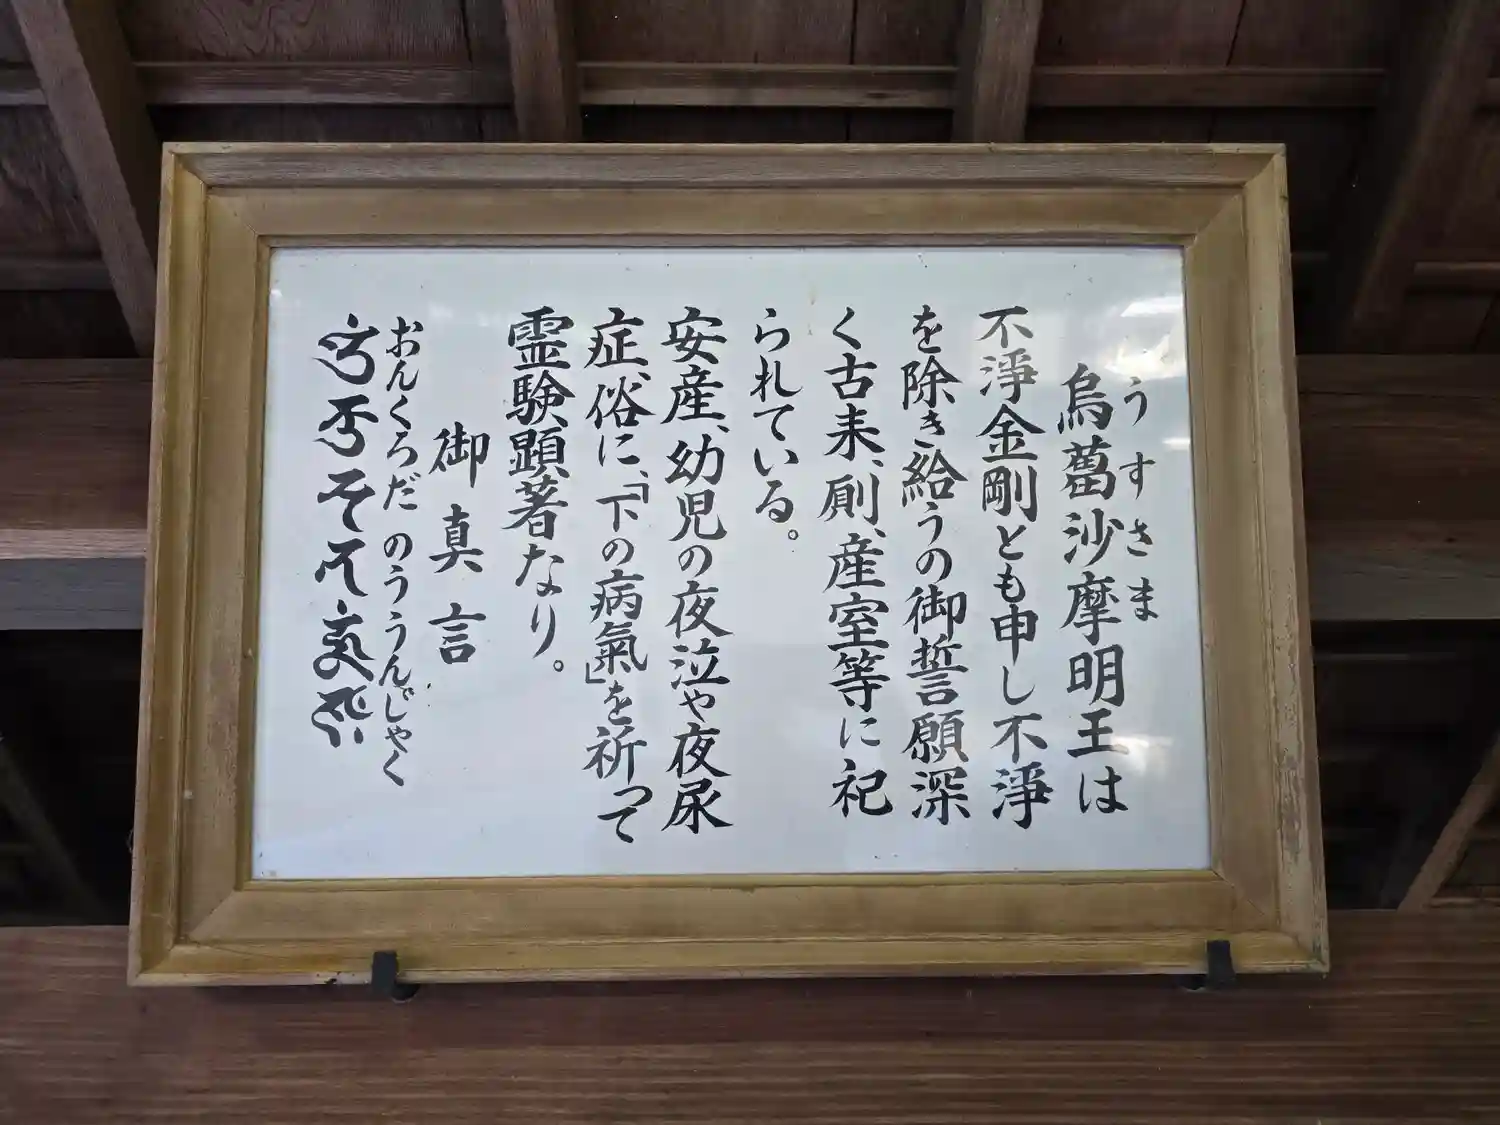 うすさま
烏蒭沙摩明王は
不淨金剛とも申し不淨
を除き給うの御誓願深
く古来、厠、産室等に祀
られている。
安産、幼児の夜泣や夜尿
症、俗に、「下の病氣」を祈って
霊験顕著なり。
御真言
おんくろだ のううんじゃく